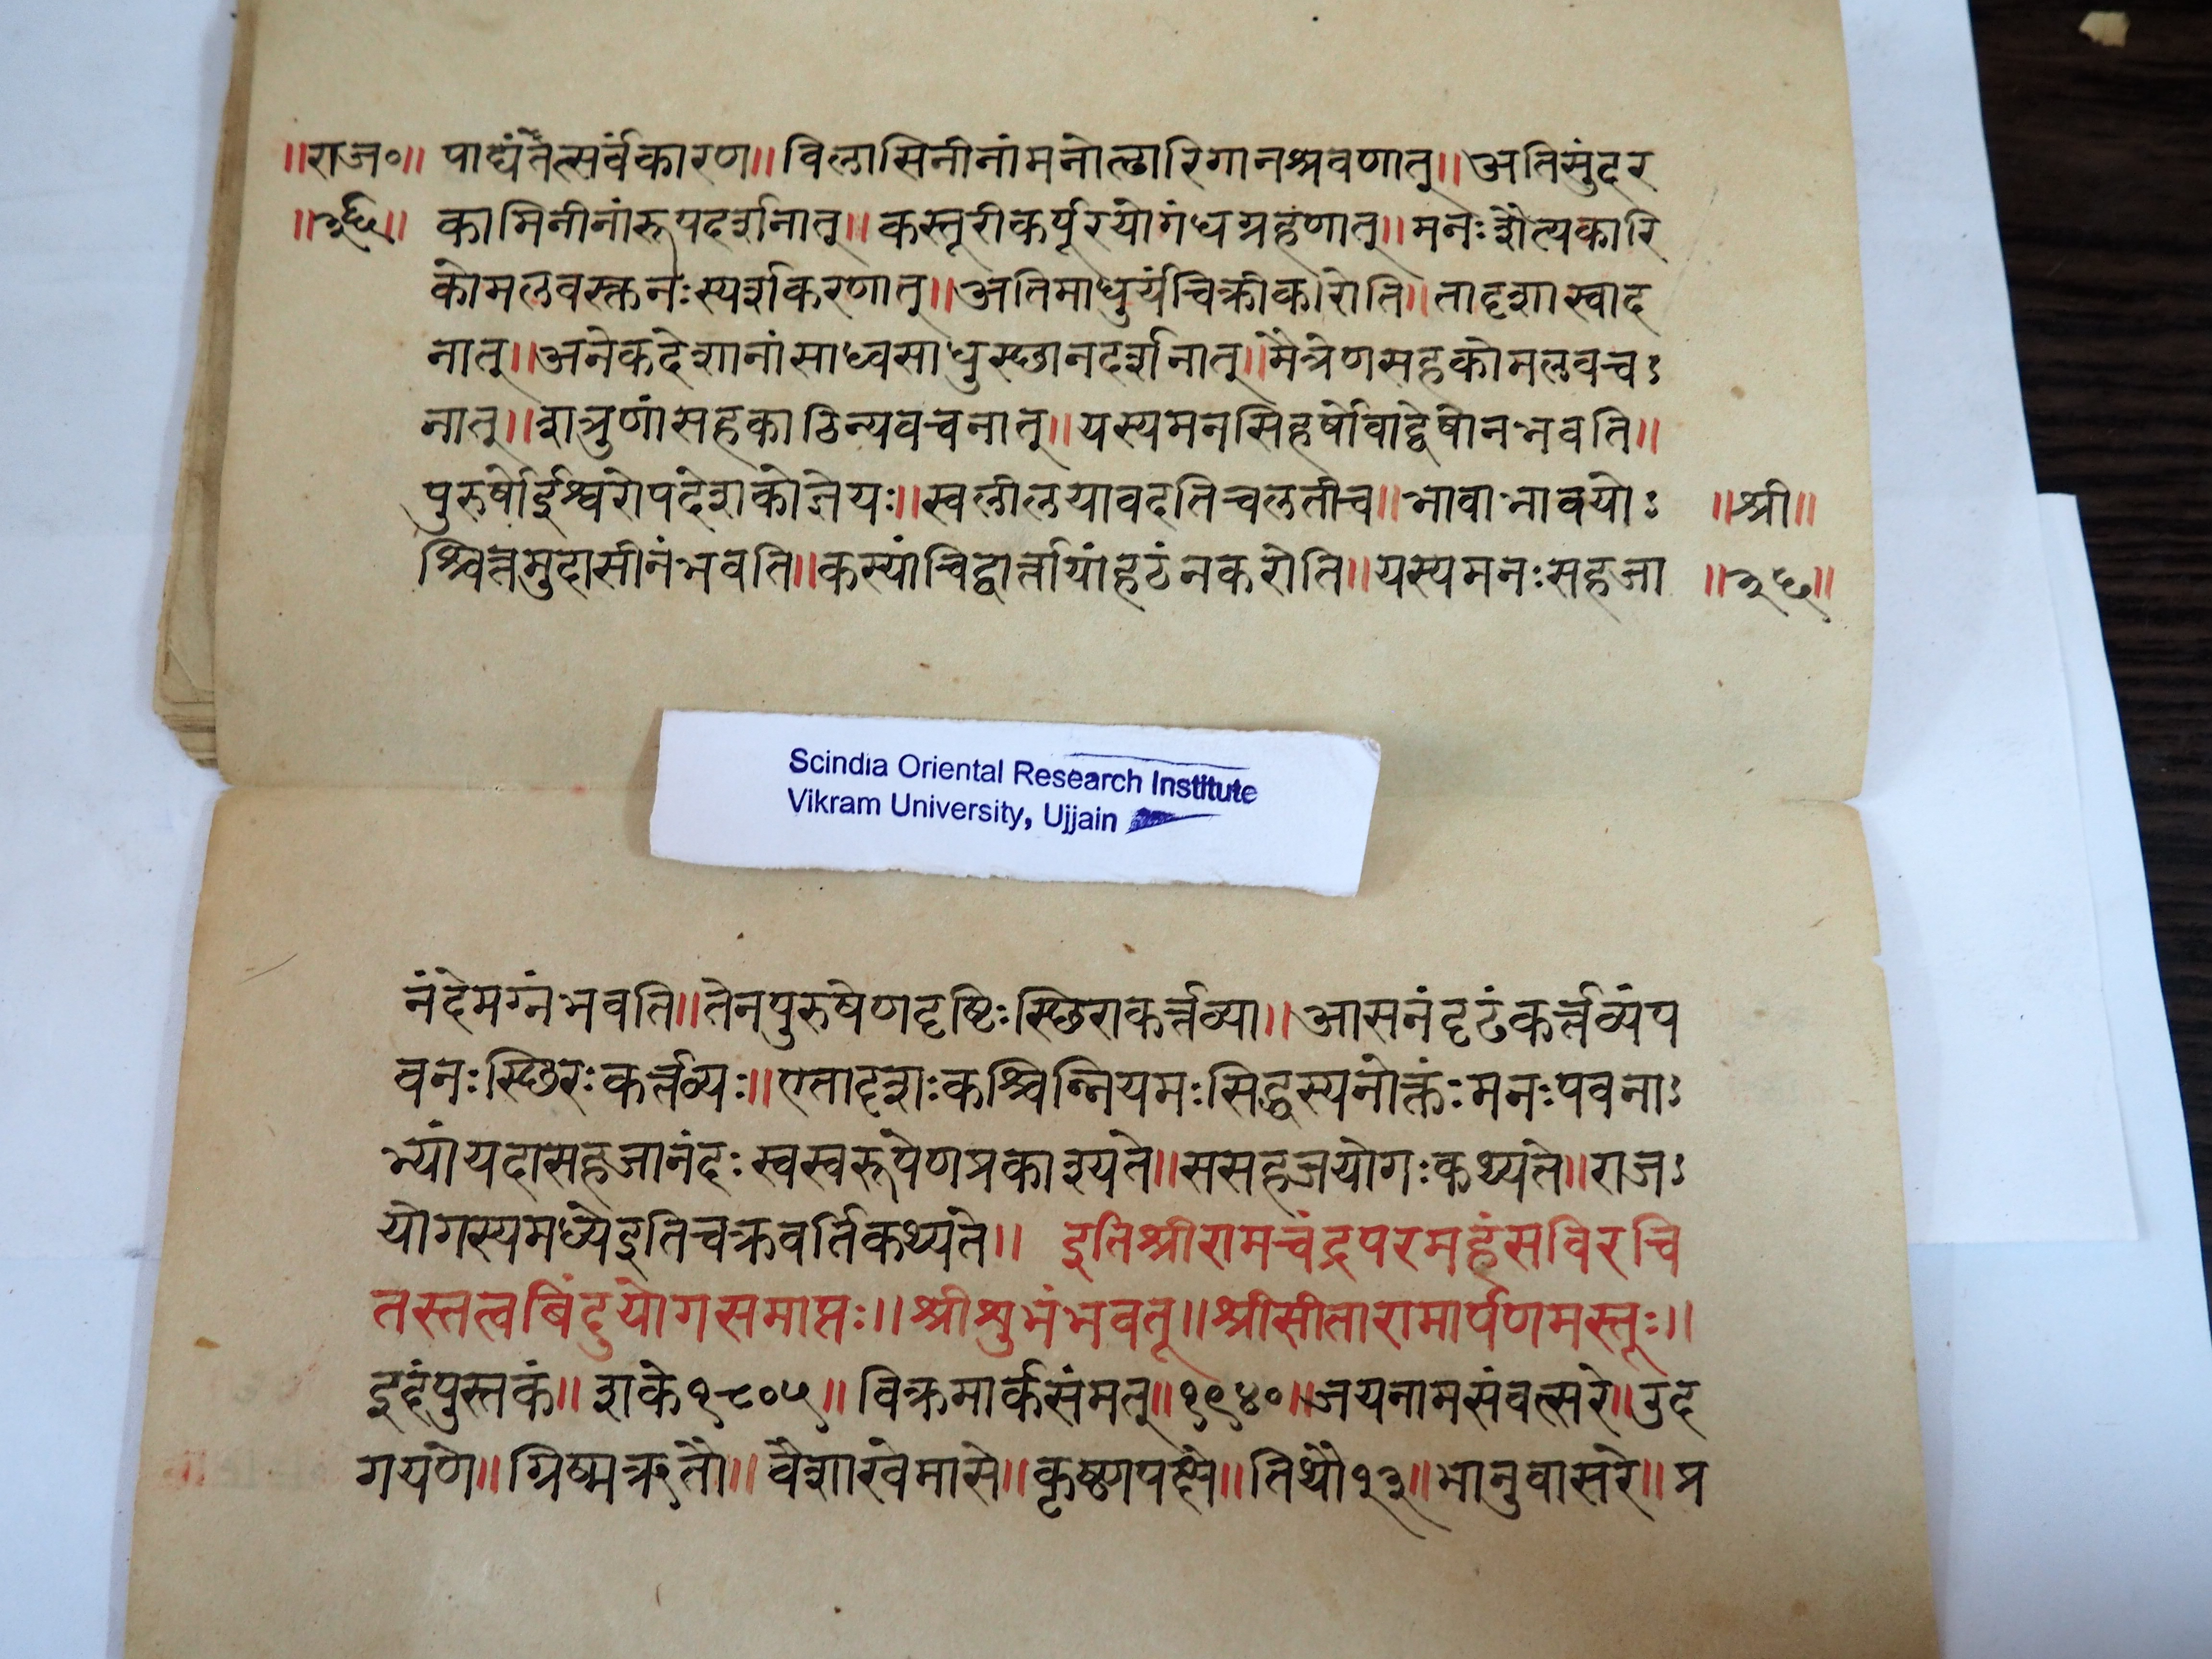 ॥राज०॥ पाद्यंतेत्सर्वकारण॥विलासिनीनांमनोल्हारिगानश्रवणात्॥अतिसुंदर
॥३६॥ कामिनीनांरूपदर्शनात्॥कस्तूरीकर्पूरयोगंधग्रहणात्॥मनःशैत्यकारि
कोमलवस्क्तनःस्पर्शकरणात्॥अतिमाधुर्यचिक्रीकारोति॥तादृशास्वाद
नात्॥अनेकदेशानांसाध्वसाधुस्छानदर्शनात्॥मैत्रेणसहकोमलवचः
नात्॥शत्रुणांसहकाठिन्यवचनात्॥यस्यमनसिहर्षोवाद्वेषोनभवति॥
पुरुषोईश्वरोपदेशकोज्ञेयः॥स्वलीलयावदतिचलतीच॥भावाभावयोः ॥श्री॥
श्चित्तमुदासीनंभवति॥कस्यांचिद्वार्त्तायांहठंनकरोति॥यस्यमनःसहजा ॥३६॥
Scindia Oriental Research Institute
Vikram University, Ujjain
नंदेमग्नंभवति॥तेनपुरुषेणदृष्टिःस्छिराकर्त्तव्या॥आसनंदृढंकर्त्तव्यंप
वनःस्छिरःकर्त्तव्यः॥एतादृशःकश्चिन्नियमःसिद्धस्यनोक्तंःमनःपवनाः
भ्यांयदासहजानंदःस्वस्वरूपेणप्रकाश्यते॥ससहजयोगःकथ्यते॥राजः
योगस्यमध्येइतिचक्रवर्तिकथ्यते॥ इतिश्रीरामचंद्रपरमहंसविरचि
तस्तत्वबिंदुयोगसमाप्तः॥श्रीशुभंभवतू॥श्रीसीतारामार्पणमस्तूः॥
इदंपुस्तकं॥शके१८०५॥विक्रमार्कसंमत्॥१९४०॥जयनामसंवत्सरे॥उद
गयणे॥ग्रिष्मऋतौ॥वैशाखेमासे॥कृष्णपक्षे॥तिथौ१३॥भानुवासरे॥प्र